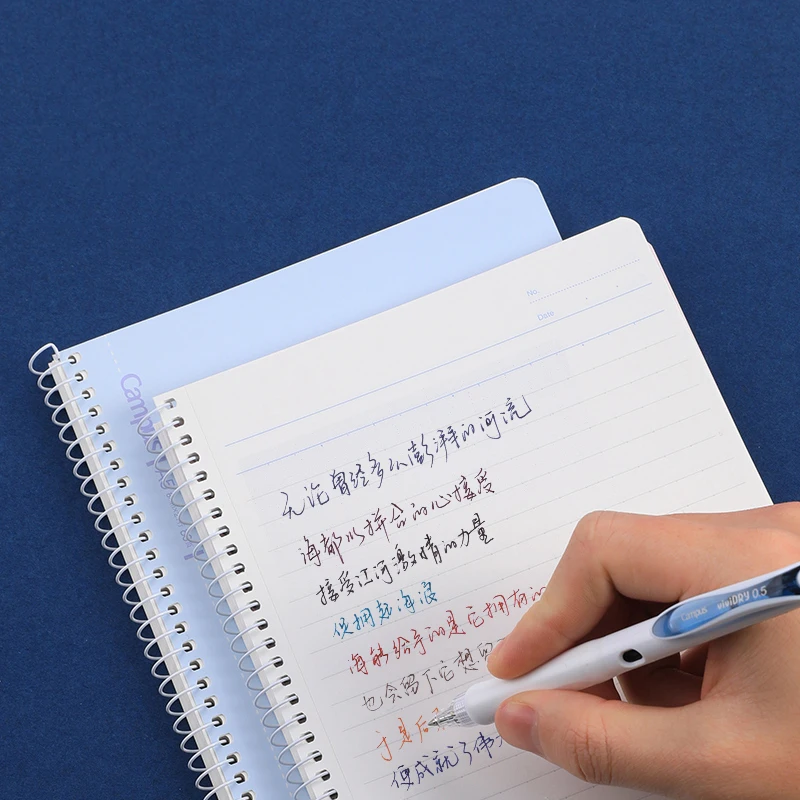 No.
Date
Campus
无论曾经多么澎湃的河流
海都以拼合的心接受
接受江河激情的力量
但拥起海浪
海能给予的是它拥有的
也会留下它想留
于是后
便成就了伟
Campus ViViDRY 0.5